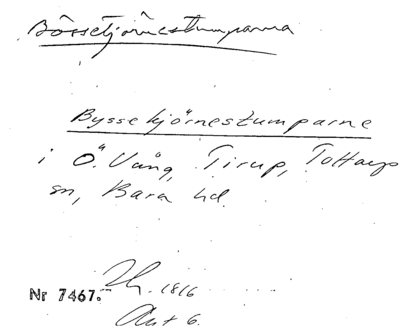 Bössetjörnestumparna
Byssekjörnestumparne
i Ö. Vång, Tirup, Tottarps
sn, Bara hd.
Nr 7467. 1816
Akt 6.